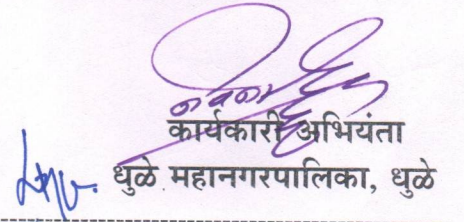 कार्यकारी अभियंता
धुळे महानगरपालिका, धुळे